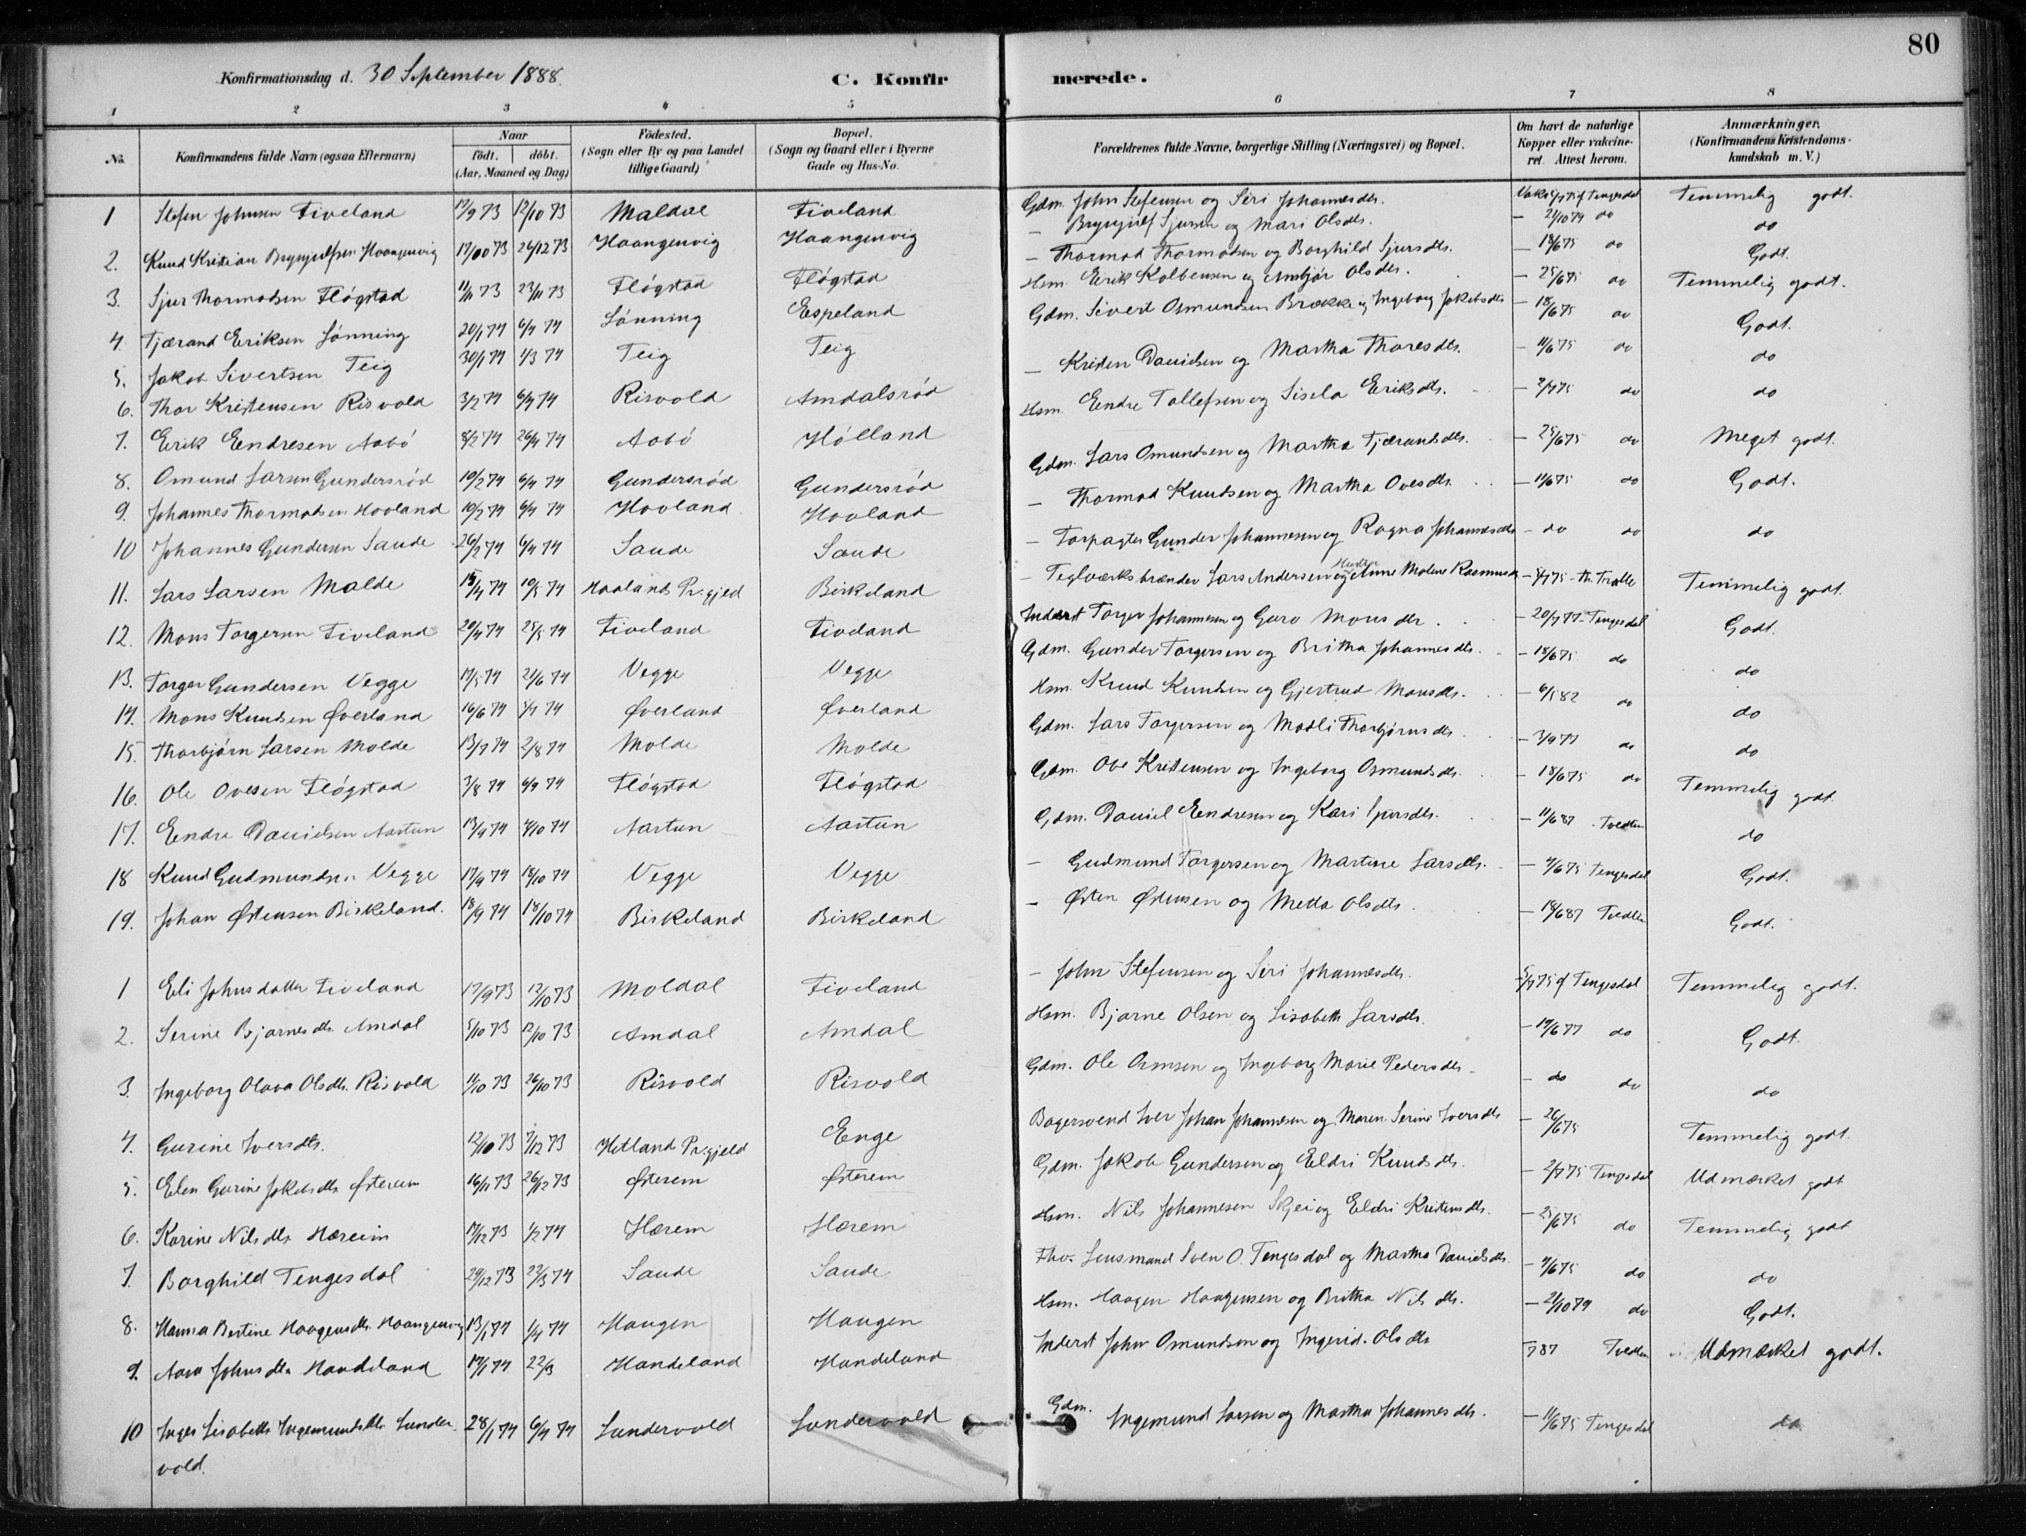 80
Konfirmationsdag d. 30 September 1888. C. Konfir merede.
1 2 3 4 5 6 7 8
No. Konfirmandens fulde Navn (ogsaa Efternavn) Naar født. døbt. (Aar, Maaned og Dag) Fødested. (Sogn eller By og paa Landet tillige Gaard) Bopæl. (Sogn og Gaard eller i Byerne Gade og Hus-No. Forældrenes fulde Navne, borgerlige Stilling (Næringsvei) og Bopæl. Om havt de naturlige Kopper eller vakcineret. Attest herom. Anmærkninger. (Konfirmandens Kristendomskundskab m. V.)
1 Stefen Johnsen Fiveland 17/9 73 12/10 73 Maldal Fiveland Gdm. John Stefensen og Siri Johannesdtr. Tengesdal Temmelig godt.
2. Knud Kristian Brynjulfsen Haangenvig 26/12 73 Haangenvig Haangenvig — Brynjulf Sjursen og Mari Olsdtr. — 21/10 74 do do
3. Sjur Thormodsen Fløgstad 11/11 73 23/11 73 Fløgstad Fløgstad — Thormod Thormodsen og Borghild Sjursdtr. — 18/6 75 do Godt.
4. Tjærand Eriksen Lønning 20/1 74 6/4 74 Lønning Espeland Hsm. Erik Kolbensen og Ansbjør Olsdtr. — 25/6 75 do Temmelig godt.
5. Jakob Sivertsen Teig 30/1 74 1/3 74 Teig Teig Gdm. Sivert Osmundsen Brække og Ingeborg Jakobsdtr — 18/6 75 do Godt.
6. Thor Kristensen Risvold 3/2 74 6/4 74 Risvold Amdalsrød — Kristen Danielsen og Martha Thoresdtr. — 11/6 75 do do
7. Erik Endresen Aabø 8/2 74 26/4 74 Aabø Hølland Hsm. Endre Tollefsen og Sisela Eriksdtr. — 2/7 75 do do
8. Omund Larsen Gundersrød 10/2 74 6/4 74 Gundersrød Gundersrød Gdm. Lars Omundsen og Martha Tjærandsdtr. — 25/6 75 do Meget godt.
9. Johannes Thormodsen Hovland 10/2 74 6/4 74 Hovland Hovland — Thormod Knudsen og Martha Ovesdtr. — 11/6 75 do Godt.
10 Johannes Gundersen Saude 26/2 74 6/4 74 Saude Saude — Forpagter Gunder Johannesen og Ragna Johannesdtr — do do do
11. Lars Larsen Malde 15/4 74 10/5 74 Haaland Pr.gjeld Birkeland — Teglværksbrænder Lars Andersen og Hustru Anne Malene Rasmusdtr — 5/7 75 Temmelig godt.
12. Mons Torgersen Fiveland 20/4 74 25/5 74 Fiveland Fiveland Inderst Torger Johannesen og Guro Monsdtr. — 20/7 77 Tengesdal Godt.
13. Torger Gundersen Vegge 17/5 74 21/6 74 Vegge Vegge Gdm. Gunder Torgersen og Britha Johannesdtr. — 18/6 75 do do
14. Mons Knudsen Øverland 16/6 74 Øverland Øverland Hsm. Knud Knudsen og Gjertrud Monsdtr. — 6/5 82 do do
15. Thorbjørn Larsen Molde 13/7 74 2/8 74 Molde Molde Gdm. Lars Torgersen og Madli Thorbjørnsdtr. — 3/9 77 do do
16. Ole Ovesen Fløgstad 3/8 74 6/9 74 Fløgstad Fløgstad Gdm. Ove Kristensen og Ingeborg Osmundsdtr. — 18/6 75 do Temmelig godt.
17. Endre Danielsen Aartun 13/9 74 4/10 74 Aartun Aartun Gdm. Daniel Endresen og Kari Sjursdtr. — 11/6 87 Tvedten do
18 Knud Gudmundsen Vegge 17/9 74 18/10 74 Vegge Vegge — Gudmund Torgersen og Martine Larsdtr. — 4/6 75 Tengesdal Godt.
19. Johan Østensen Birkeland. 18/9 74 18/10 74 Birkeland Birkeland — Østen Østensen og Metta Olsdtr. — 18/6 87 Tvedten Godt.
1 Eli Johnsdatter Fiveland 17/9 73 12/10 73 Moldal Fiveland — John Stefensen og Siri Johannesdtr. 5/7 75 af Tengesdal Temmelig godt.
2. Serine Bjarnesdtr. Amdal 5/10 73 12/10 73 Amdal Amdal Hsm. Bjarne Olsen og Lisabeth Larsdtr. — 14/6 77 do Godt.
3. Ingeborg Olava Olsdtr. Risvold 11/10 73 26/10 73 Risvold Risvold Gdm. Ole Osmsen og Ingeborg Marie Pedersdtr. — do do do
4. Gurine Iversdtr. 12/10 73 7/12 73 Hetland Pr:gjeld Enge Bagersvend Iver Johan Johannesen og Maren Serine Iversdtr — 26/6 75 Temmelig godt.
5. Elen Gurine Jakobsdtr Østerem 16/11 73 26/12 73 Østerem Østerem Gdm. Jakob Gundersen og Eldri Knudsdtr. — 2/7 75 Tengesdal Udmærket godt
6. Karine Nilsdtr. Hæreim 17/12 73 1/2 74 Hærem Hærem Hsm. Nils Johannesen Skjei og Eldri Kristensdtr. — 25/6 75 do Temmelig godt
7. Borghild Tengesdal 29/12 73 22/3 74 Saude Saude Fhv. Lensmand Sven O. Tengesdal og Martha Danielsdtr — 4/6 75 do do
8. Hanna Bertine Haagensdtr. Haangenvig 13/1 74 1/4 74 Haugen Haugen Hsm. Haagen Haagensen og Britha Nilsdtr. — 21/10 74 do Godt.
9. Aasa Johnsdtr. Handeland 14/1 74 22/3 Handeland Handeland Inderst John Omundsen og Ingerid Olsdtr 87 Tvedten Udmærket godt.
10 Inger Lisabeth Ingemundsdtr. Sundervold. 28/1 74 6/4 74 Sundervold Sundervold Gdm. Ingemund Larsen og Martha Johannesdtr. — 11/6 75 Tengesdal do